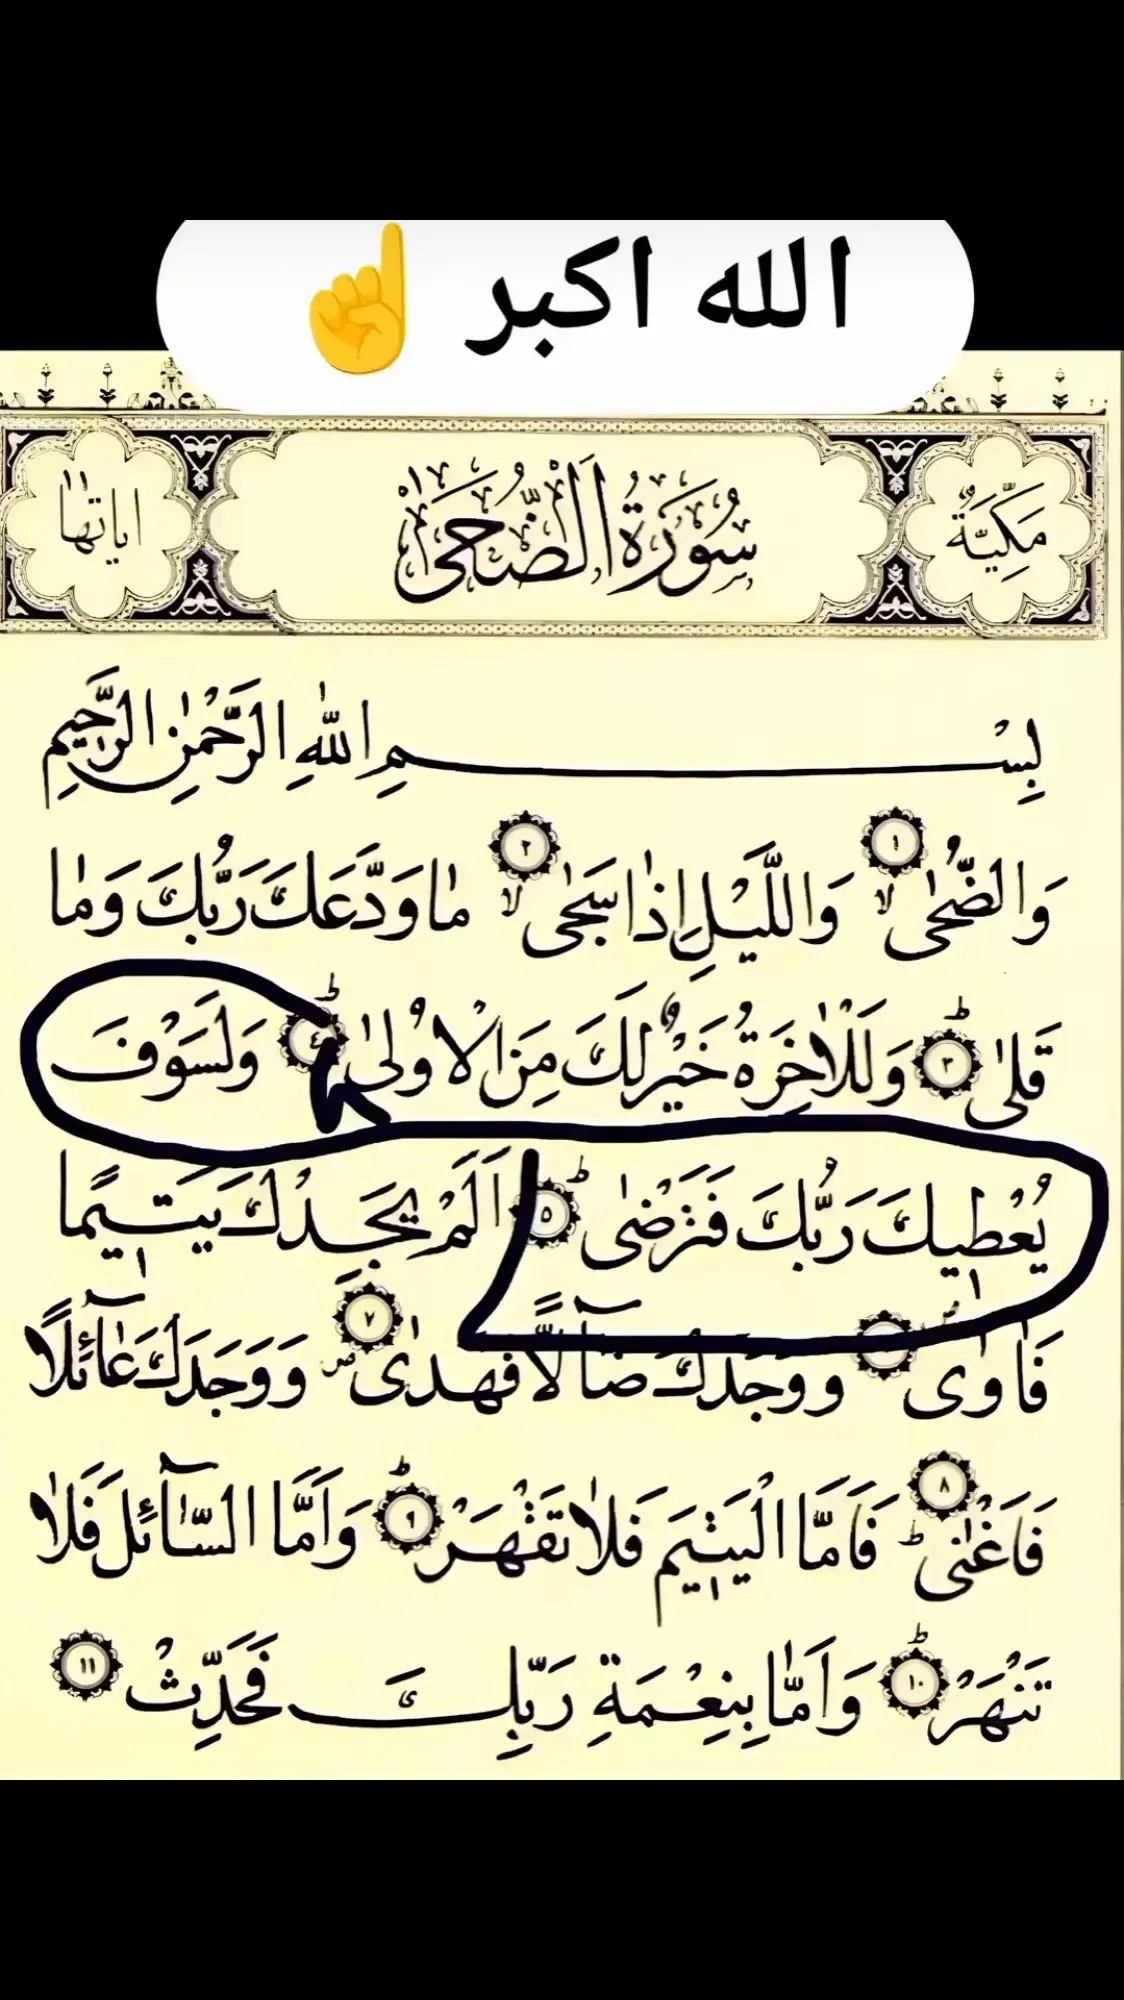 الله اكبر ☝
مَكِّيَّةٌ سُوْرَةُ الضُّحٰى اٰیاتها ١١
بِسْمِ اللّٰهِ الرَّحْمٰنِ الرَّحِيْمِ
وَالضُّحٰى ۙ ١ وَاللَّيْلِ اِذَا سَجٰى ۙ ٢ مَا وَدَّعَكَ رَبُّكَ وَمَا
قَلٰى ؕ ٣ وَلَلْاٰخِرَةُ خَيْرٌ لَّكَ مِنَ الْاُوْلٰى ؕ ٤ وَلَسَوْفَ
يُعْطِيْكَ رَبُّكَ فَتَرْضٰى ؕ ٥ اَلَمْ يَجِدْكَ يَتِيْمًا
فَاٰوٰى وَوَجَدَكَ ضَآلًّا فَهَدٰى ۪ ٧ وَوَجَدَكَ عَآئِلًا
فَاَغْنٰى ؕ ٨ فَاَمَّا الْيَتِيْمَ فَلَا تَقْهَرْ ؕ ٩ وَاَمَّا السَّآئِلَ فَلَا
تَنْهَرْ ؕ ١٠ وَاَمَّا بِنِعْمَةِ رَبِّكَ فَحَدِّثْ ١١